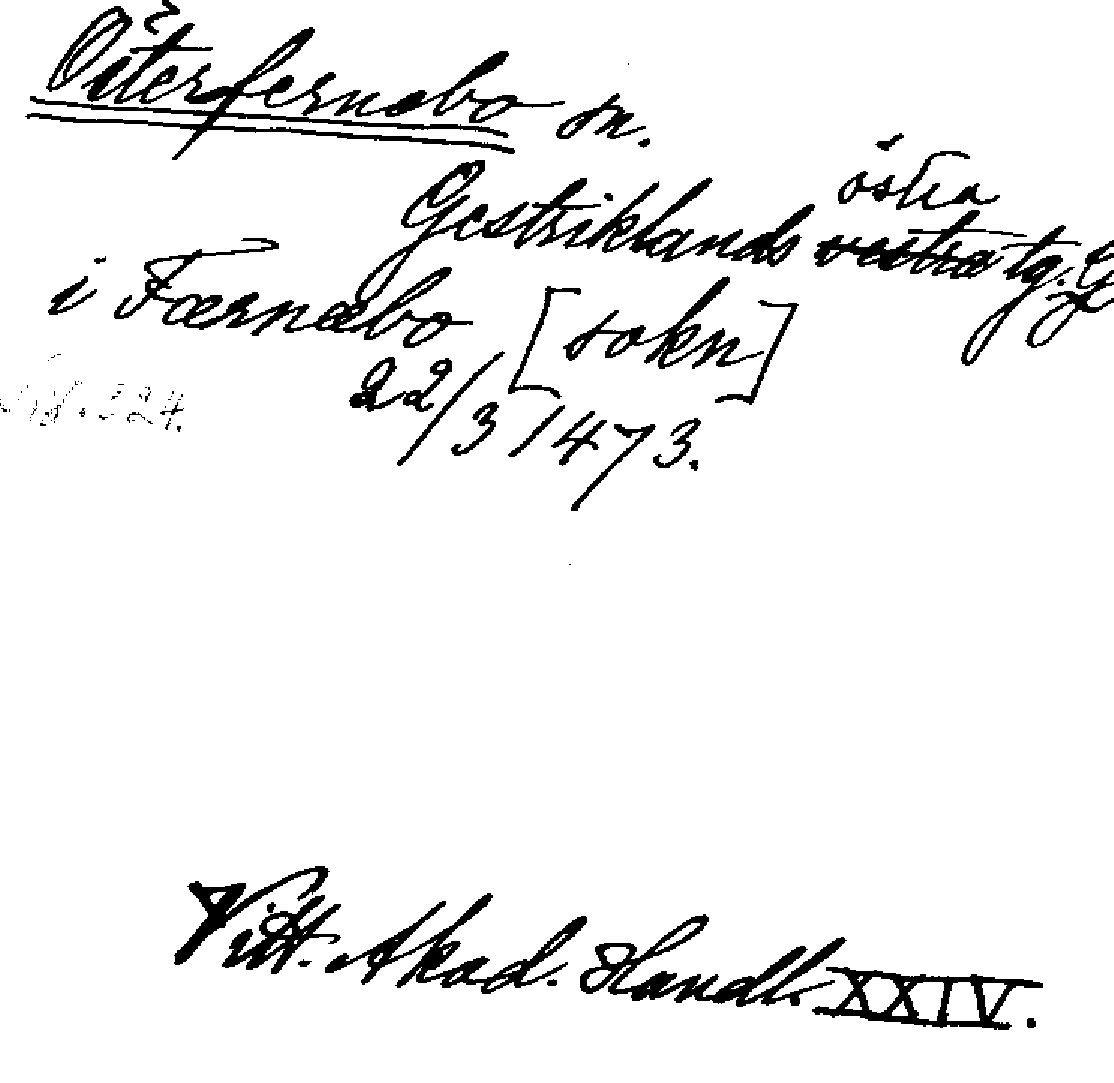 Österfernebo sn.
östra
Gestriklands vestra tg. G
i Færnæbo [sokn]
22/3 1473.
324.
Vitt. Akad. Handl. XXIV.